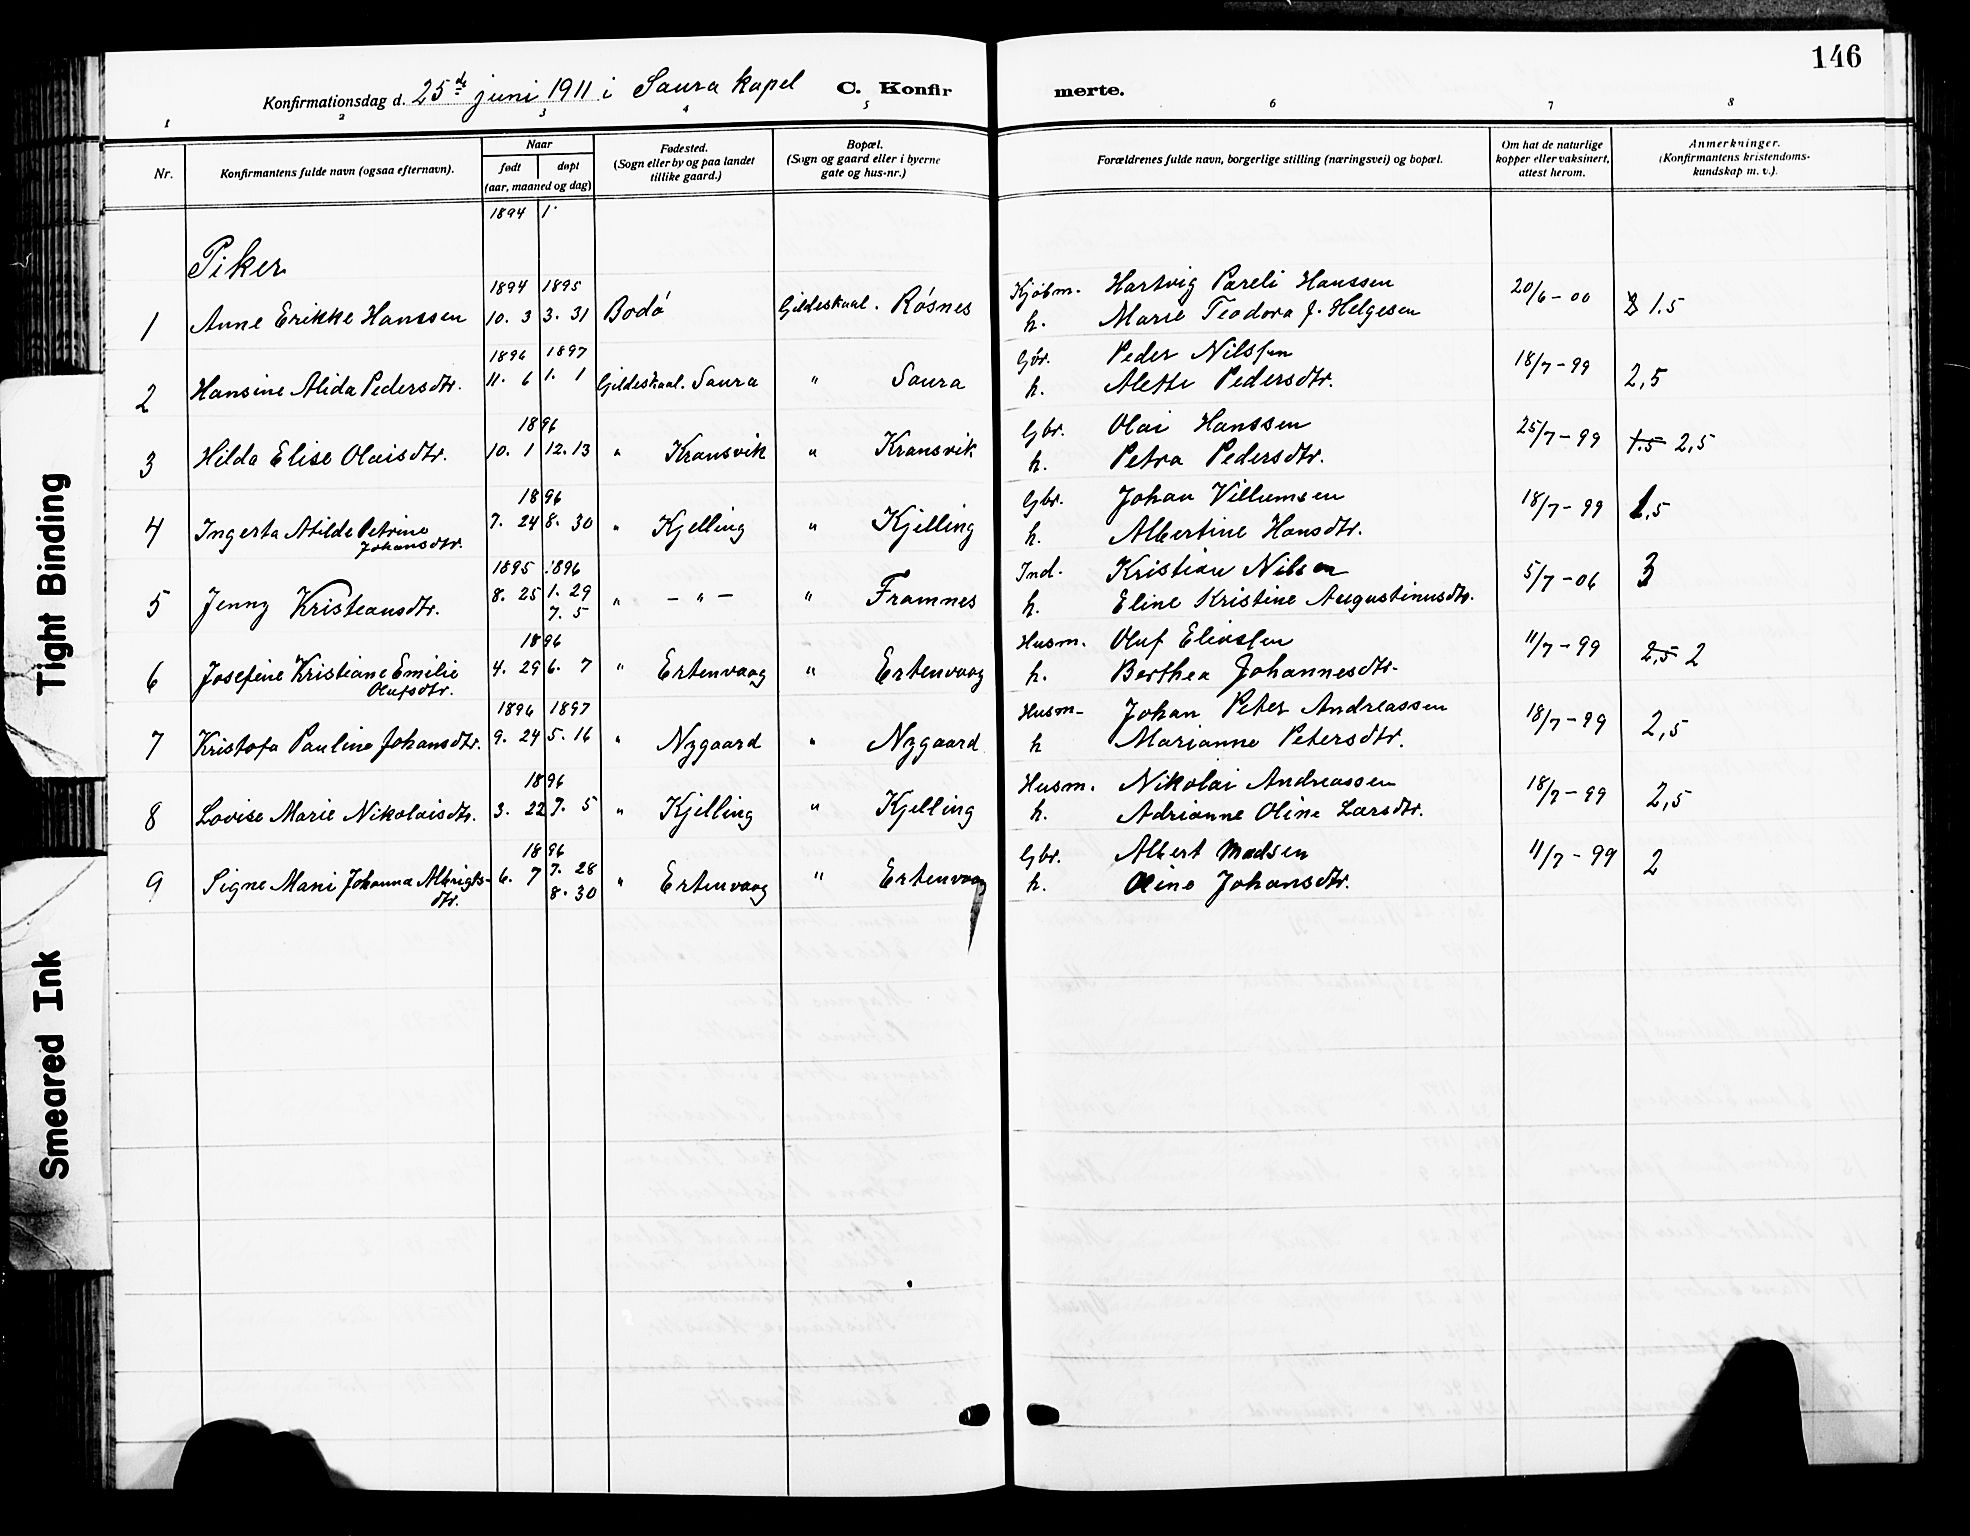 146
Konfirmationsdag d. 25de juni 1911 i Saura kapel C. Konfirmerte.
1 2 3 4 5 6 7 8
Nr. Konfirmantens fulde navn (ogsaa efternavn). Naar født døpt (aar, maaned og dag) Fødested. (Sogn eller by og paa landet tillike gaard.) Bopæl. (Sogn og gaard eller i byerne gate og hus-nr.) Forældrenes fulde navn, borgerlige stilling (næringsvei) og bopæl. Om hat de naturlige kopper eller vaksinert, attest herom. Anmerkninger. (Konfirmantens kristendoms-kundskap m. v.).
1894 1
Piker
1894 1895 Kjøbm. Hartvig Pareli Hanssen
1 Anne Erikke Hanssen 10. 3 3. 31 Bodø Gildeskaal. Røsnes h. Marie Teodora J. Helgesen 20/6-00 1.5
1896 1897 Gbr. Peder Nilssen
2 Hansine Alida Pedersdtr. 11. 6 1. 1 Gildeskaal. Saura " Saura h. Alette Pedersdtr. 18/7-99 2,5
1896 Gbr. Olai Hanssen
3 Hilda Elise Olaisdtr. 10. 1 12. 13 " Kransvik " Kransvik h. Petra Pedersdtr. 25/7-99 1.5 2,5
1896 Gbr. Johan Villumsen
4 Ingerta Atilde Petrine Johansdtr. 7. 24 8. 30 " Kjelling " Kjelling h. Albertine Hansdtr. 18/7-99 1,5
1895 1896 Ind. Kristian Nilsen
5 Jenny Kristiansdtr. 8. 25 1. 29 7. 5 " - " - " Framnes h. Eline Kristine Augustinusdtr. 5/7-06 3
1896 Husm. Oluf Eliassen
6 Josefine Kristiane Emilie Olufsdtr. 4. 29 6. 7 " Ertenvaag " Ertenvaag h. Berthea Johannesdtr. 11/7-99 2,5 2
1896 1897 Husm- Johan Peter Andreassen
7 Kristofa Pauline Johansdtr. 9. 24 5. 16 " Nygaard " Nygaard h Marianne Petersdtr. 18/7-99 2,5
1896 Husm. Nikolai Andreassen
8 Lovise Marie Nikolaisdtr. 3. 22 7. 5 " Kjelling " Kjelling h. Adrianne Oline Larsdtr. 18/7-99 2,5
1896 Gbr. Albert Madsen
9 Signe Mani Johanna Albrigts-dtr. 6. 7 7. 28 8. 30 " Ertenvaag " Ertenvaag h. Oline Johansdtr. 11/7-99 2
Tight Binding
Smeared Ink